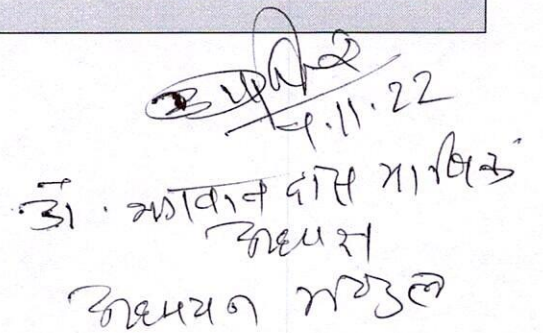 4.11.22
डॉ. भगवान दास माणिक
अध्यक्ष
अध्ययन मण्डल